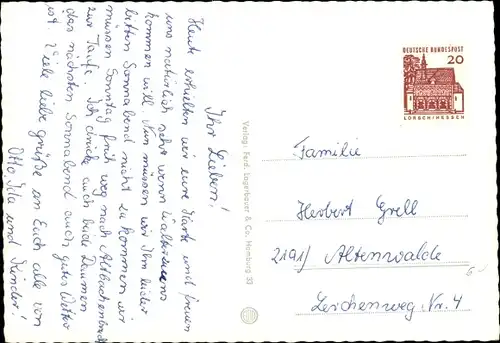 Ihr Lieben!
Heute erhielten wir eure Karte und freuen
uns natürlich sehr wenn
kommen will. Nun müssen wir Ihm leider
bitten Sonnabend nicht zu kommen wir
müssen Sonntag früh weg nach
zur Taufe. Ich drücke auch beide Daumen
das nächsten Sonnabend auch gutes Wetter
ist. Viele liebe Grüße an Euch alle von
Otto, Ila und Kinder!
Verlag: Ferd. Lagerbauer & Co. Hamburg 33
DEUTSCHE BUNDESPOST
20
LORSCH/HESSEN
Familie
Herbert Grell
2191 Altenwalde
Lerchenweg, Nr. 4